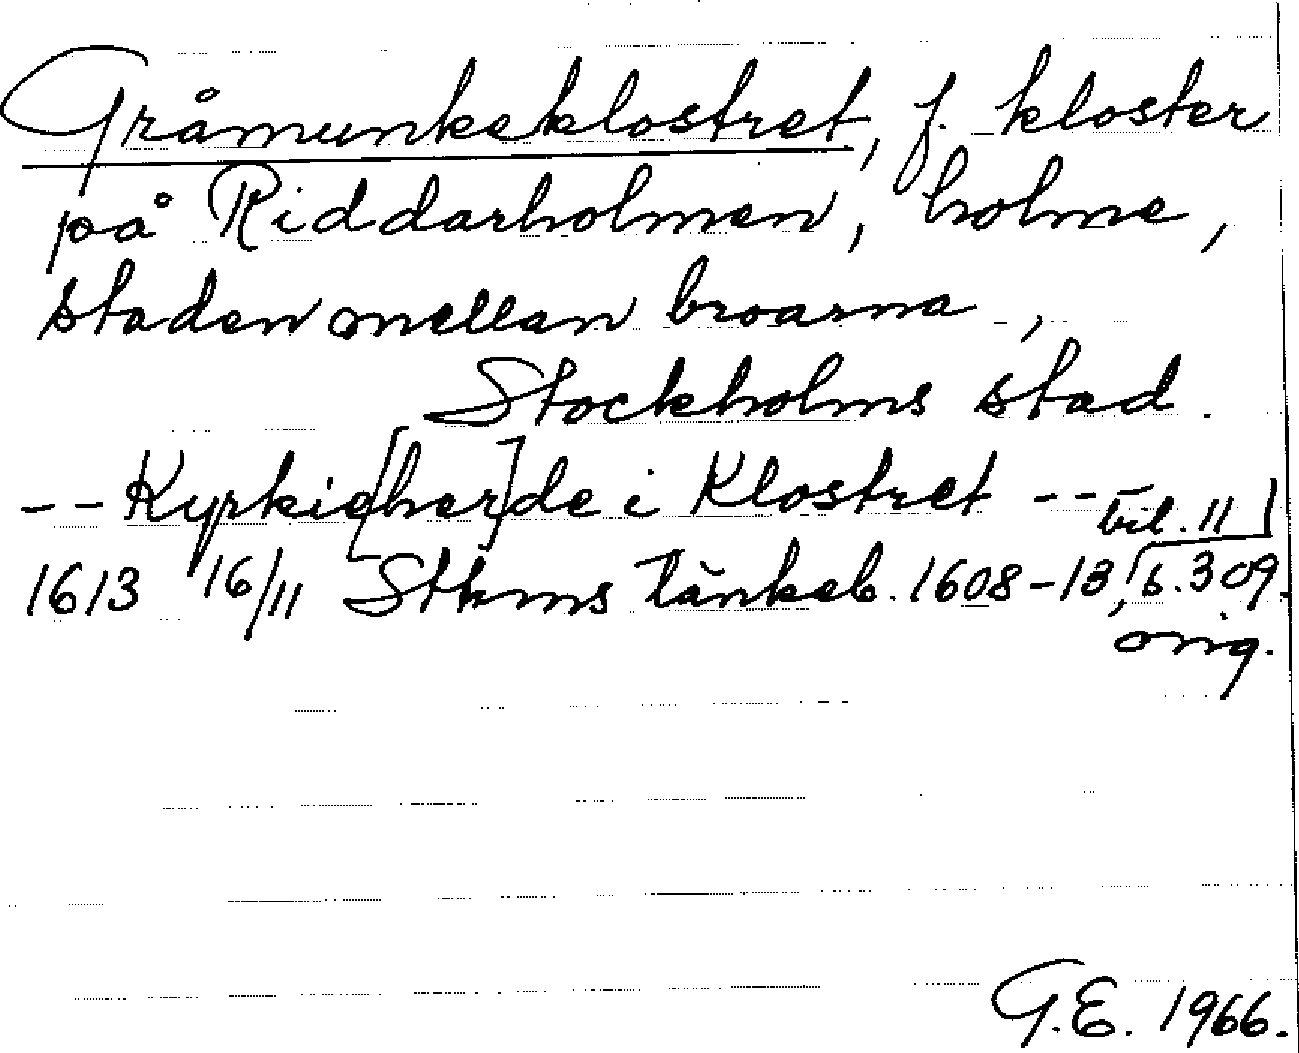 Gråmunkeklostret, f. kloster
på Riddarholmen, holme,
staden mellan broarna,
Stockholms stad.
-- Kyrkie[her]de i Klostret --
1613 16/11 Sthms Tänkeb. 1608-13, bil. 11 s. 309.
orig.
G.E. 1966.